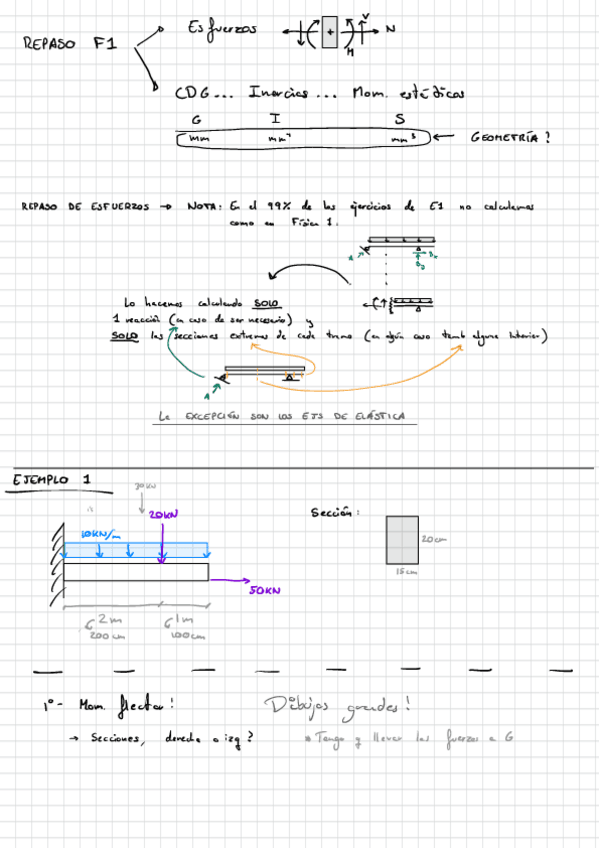 REPASO F1
Esfuerzos
V
N
M
CDG... Inercias... Mom. estáticos
G I S
mm mm⁴ mm³ ← GEOMETRÍA?
REPASO DE ESFUERZOS → NOTA: En el 99% de los ejercicios de E1 no calculamos
como en Física 1.
A
Lo hacemos calculando SOLO
1 reacción (en caso de ser necesario) y
SOLO las secciones extremas de cada tramo (en algún caso tamb alguna interior)
A
La EXCEPCIÓN SON LOS EJS DE ELÁSTICA
EJEMPLO 1
20KN
10KN/m
Sección:
20cm
15cm
50KN
2m
200cm
1m
100cm
1º- Mom. flector!
Dibujos grandes!
→ Secciones, derecha o izq?
Tengo q llevar las fuerzas a G